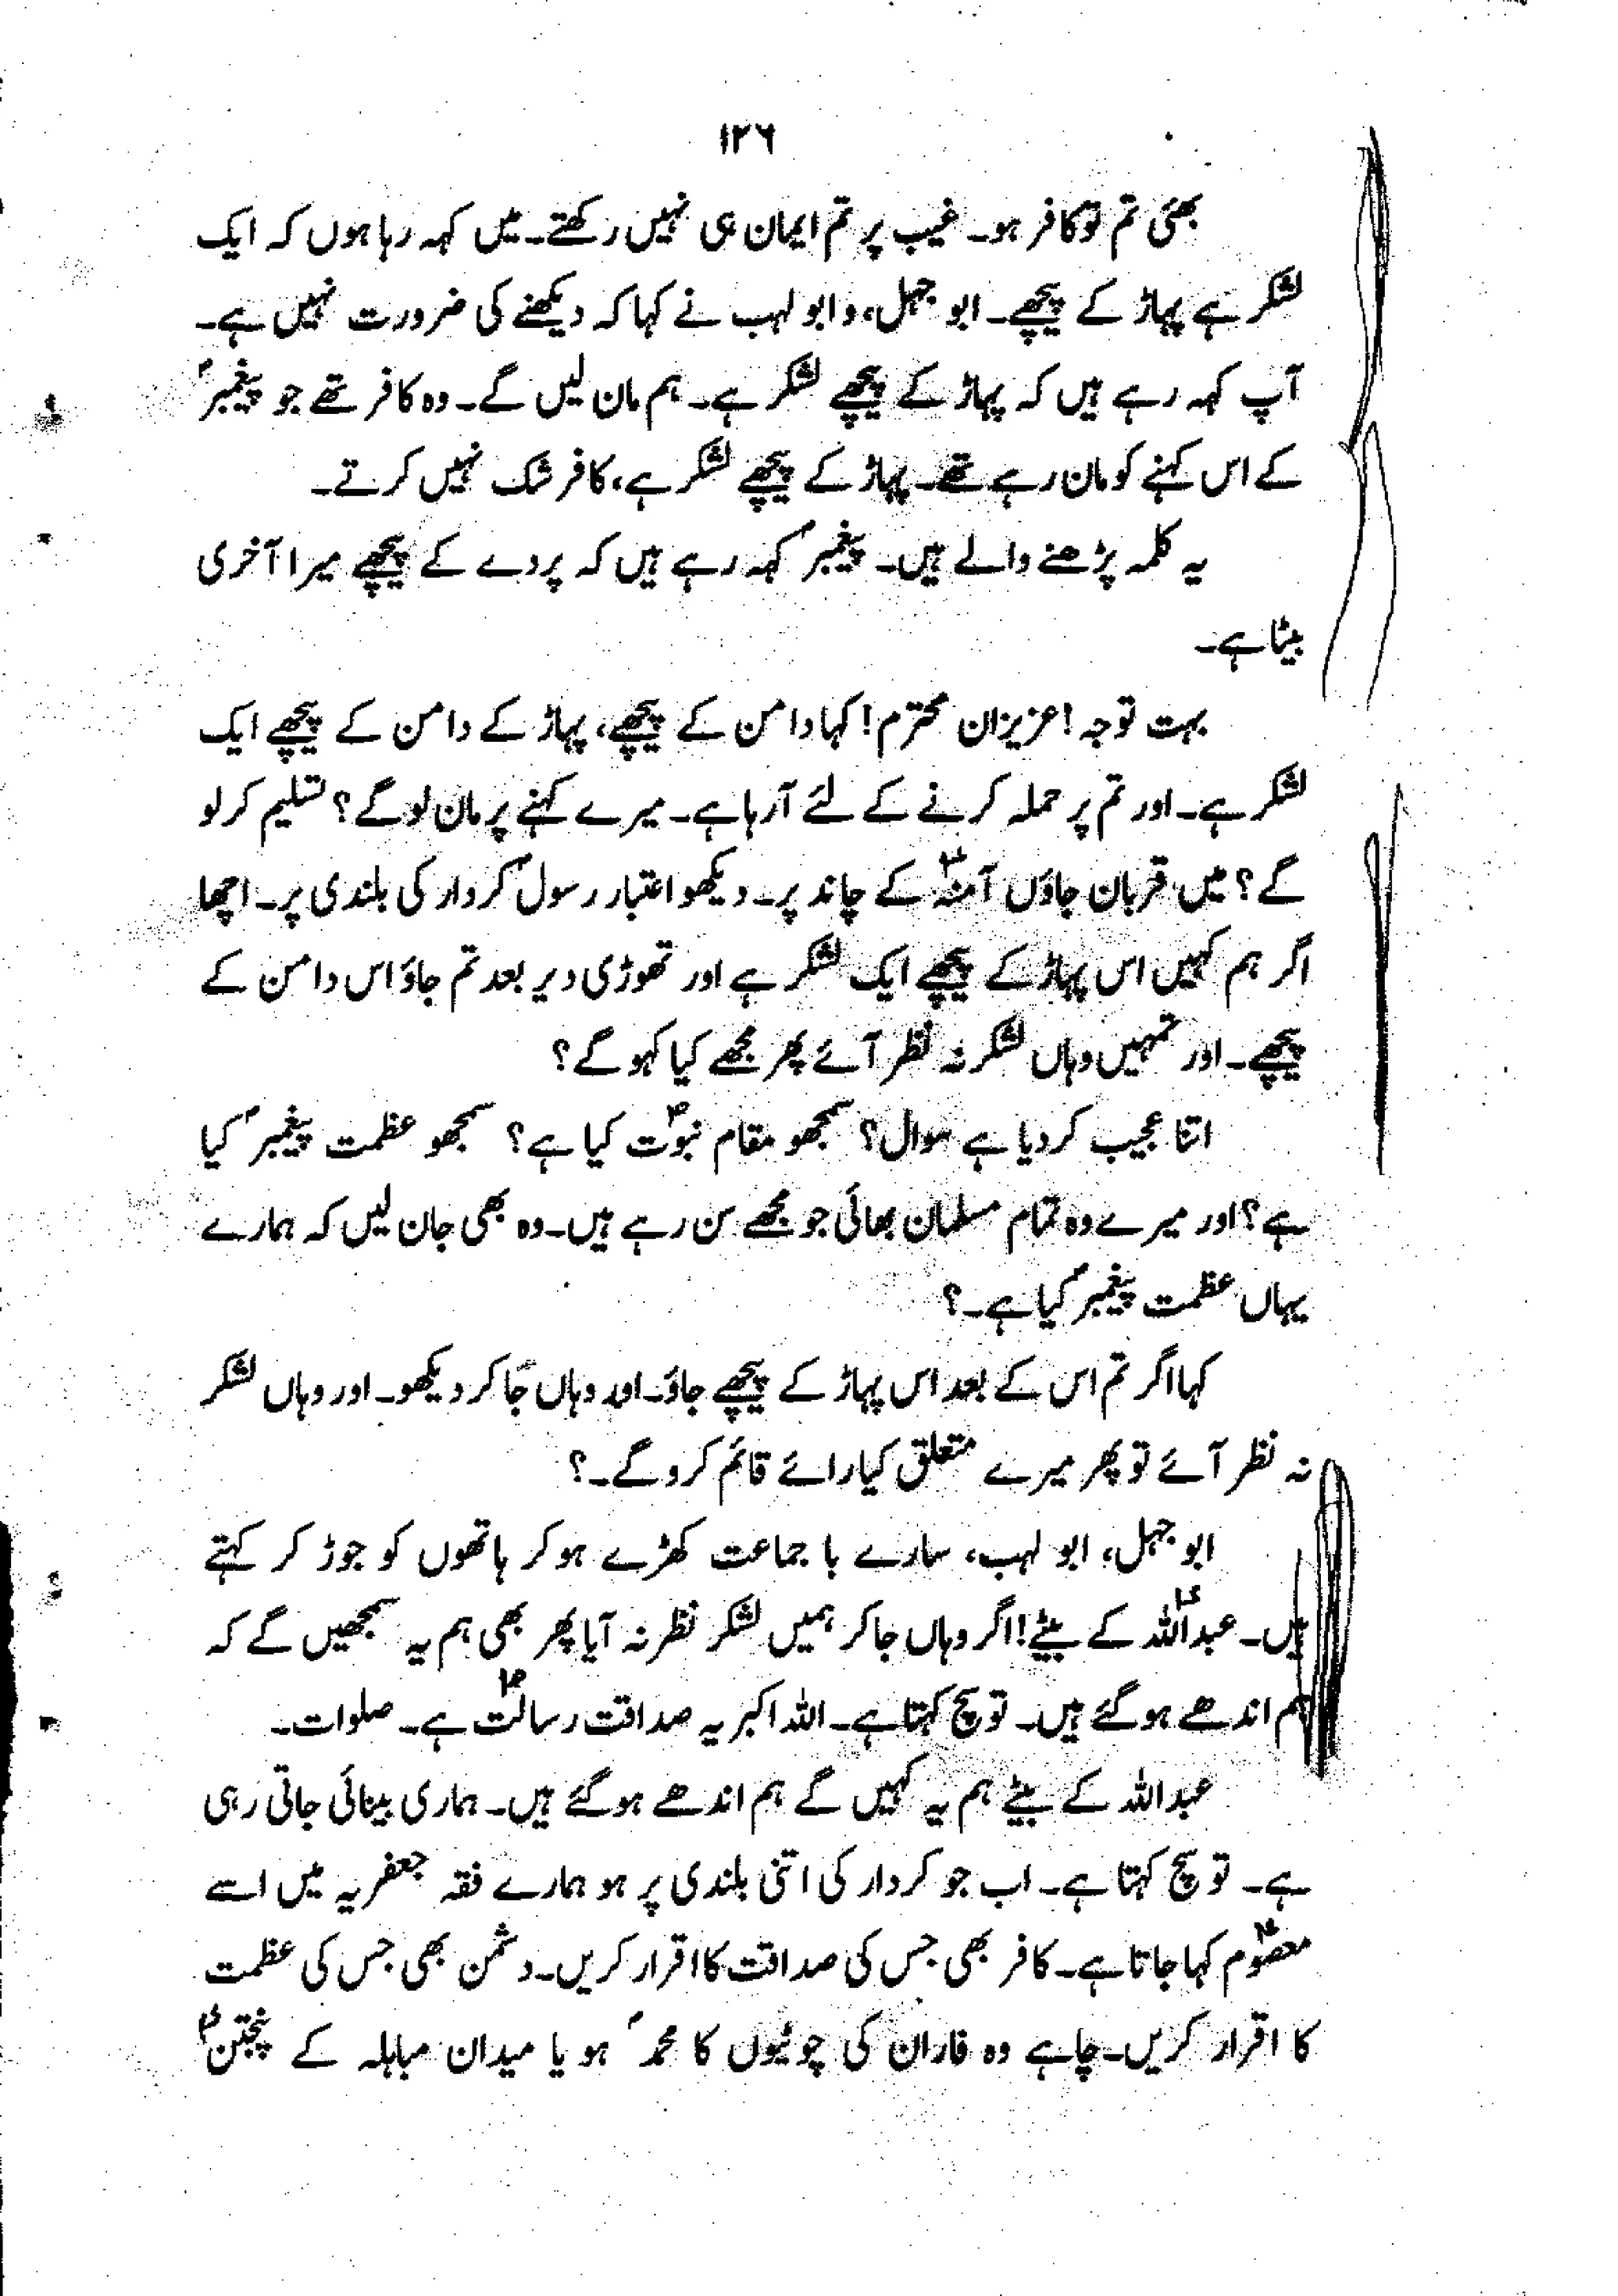 ۱۲۶
بھئی تم تو کافر ہو۔ غیب پر تم ایمان ہی نہیں رکھتے۔ میں کہہ رہا ہوں کہ ایک
لشکر ہے پہاڑ کے پیچھے۔ ابو جہل، و ابو لہب نے کہا کہ دیکھنے کی ضرورت نہیں ہے۔
آپ کہہ رہے ہیں کہ پہاڑ کے پیچھے لشکر ہے۔ ہم مان لیں گے۔ وہ کافر تھے جو پیغمبرؐ
کے اس کہنے کو مان رہے تھے۔ پہاڑ کے پیچھے لشکر ہے، کافر شک نہیں کرتے۔
یہ کلمہ پڑھنے والے ہیں۔ پیغمبرؐ کہہ رہے ہیں کہ پردے کے پیچھے میرا آخری
بیٹا ہے۔
بہت توجہ! عزیزان محترم! کہا دامن کے پیچھے، پہاڑ کے دامن کے پیچھے ایک
لشکر ہے۔ اور تم پر حملہ کرنے کے لئے آرہا ہے۔ میرے کہنے پر مان لو گے؟ تسلیم کرلو
گے؟ میں قربان جاؤں آمنہؑ کے چاند پر۔ دیکھو اعتبار رسولؐ کردار کی بلندی پر۔ اچھا
اگر ہم کہیں اس پہاڑ کے پیچھے ایک لشکر ہے اور تھوڑی دیر بعد تم جاؤ اس دامن کے
پیچھے۔ اور تمہیں وہاں لشکر نہ نظر آئے پھر مجھے کیا کہو گے؟
اتنا عجیب کردیا ہے سوال؟ سمجھو مقام نبوتؐ کیا ہے؟ سمجھو عظمت پیغمبرؐ کیا
ہے؟ اور میرے وہ تمام مسلمان بھائی جو مجھے سن رہے ہیں۔ وہ بھی جان لیں کہ ہمارے
یہاں عظمت پیغمبرؐ کیا ہے۔؟
کہا اگر تم اس کے بعد اس پہاڑ کے پیچھے جاؤ۔ اور وہاں جا کر دیکھو۔ اور وہاں لشکر
نہ نظر آئے تو پھر میرے متعلق کیا رائے قائم کرو گے۔؟
ابو جہل، ابو لہب، سارے با جماعت کھڑے ہوکر ہاتھوں کو جوڑ کر کہتے
ہیں۔ عبداللہؑ کے بیٹے! اگر وہاں جاکر ہمیں لشکر نظر نہ آیا پھر بھی ہم یہ سمجھیں گے کہ
ہم اندھے ہوگئے ہیں۔ تو سچ کہتا ہے۔ اللہ اکبر یہ صداقت رسالتؐ ہے۔ صلوات۔
عبداللہ کے بیٹے ہم یہ کہیں گے ہم اندھے ہوگئے ہیں۔ ہماری بینائی جاتی رہی
ہے۔ تو سچ کہتا ہے۔ اب جو کردار کی اتنی بلندی پر ہو ہمارے فقہ جعفریہ میں اسے
معصومؑ کہا جاتا ہے۔ کافر بھی جس کی صداقت کا اقرار کریں۔ دشمن بھی جس کی عظمت
کا اقرار کریں۔ چاہے وہ فاران کی چوٹیوں کا محمدؐ ہو یا میدان مباہلہ کے پنجتنؑ